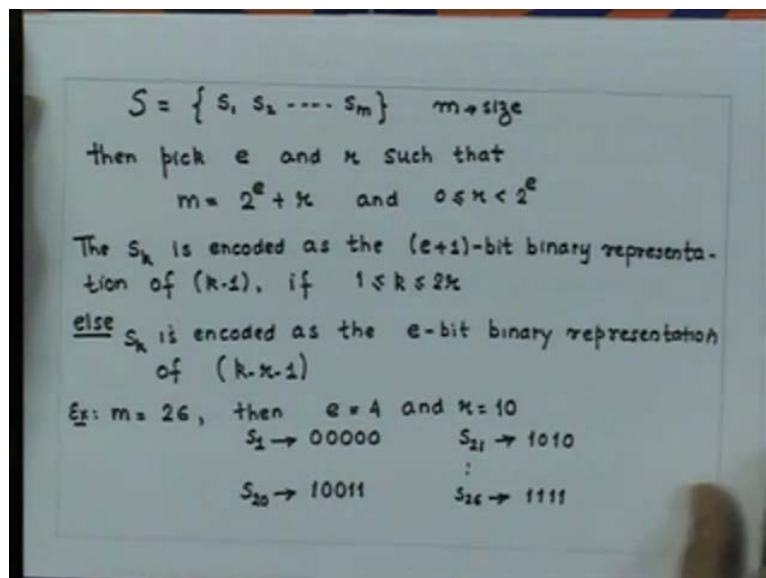 S = { s₁ s₂ ---- sₘ} m → size
then pick e and r such that
m = 2ᵉ + r and 0 ≤ r < 2ᵉ
The sₖ is encoded as the (e+1)-bit binary representa-
tion of (k-1), if 1 ≤ k ≤ 2r
else sₖ is encoded as the e-bit binary representation
of (k-r-1)
Ex: m = 26, then e = 4 and r = 10
s₁ → 00000 s₂₁ → 1010
:
s₂₀ → 10011 s₂₆ → 1111